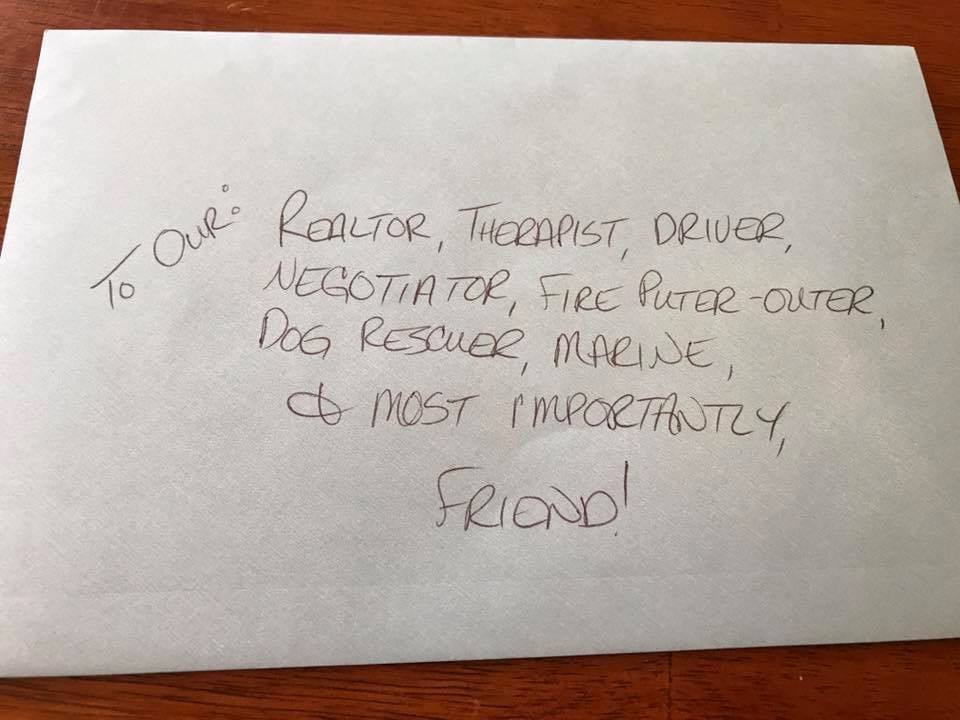 To Our: REALTOR, THERAPIST, DRIVER,
NEGOTIATOR, FIRE PUTER-OUTER,
DOG RESCUER, MARINE,
& MOST IMPORTANTLY,
FRIEND!